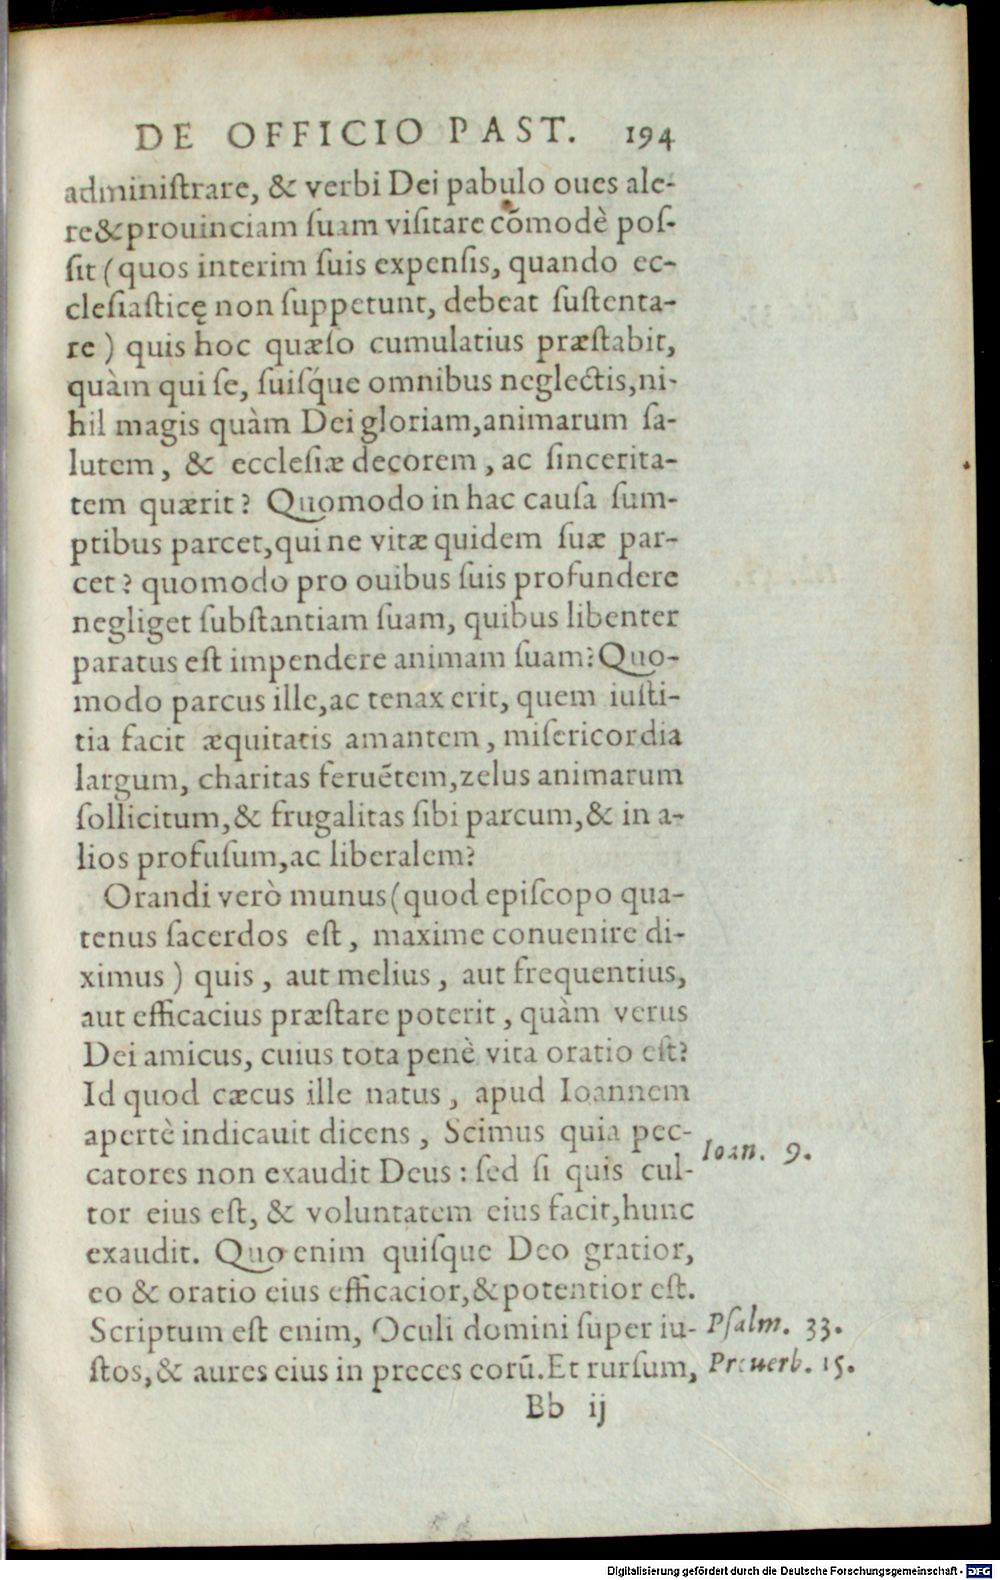 DE OFFICIO PAST. 194
adminiſtrare, & verbi Dei pabulo oues ale-
re&prouinciam ſuam viſitare cõmodè poſ-
ſit (quos interim ſuis expenſis, quando ec-
cleſiaſticę non ſuppetunt, debeat ſuſtenta-
re) quis hoc quæſo cumulatius præſtabit,
quàm qui ſe, ſuiſq́ue omnibus neglectis,ni-
hil magis quàm Dei gloriam,animarum ſa-
lutem, & eccleſiæ decorem, ac ſincerita-
tem quærit? Quomodo in hac cauſa ſum-
ptibus parcet,qui ne vitæ quidem ſuæ par-
cet? quomodo pro ouibus ſuis profundere
negliget ſubſtantiam ſuam, quibus libenter
paratus eſt impendere animam ſuam?Quo-
modo parcus ille,ac tenax erit, quem iuſti-
tia facit æquitatis amantem, miſericordia
largum, charitas feruẽtem,zelus animarum
ſollicitum,& frugalitas ſibi parcum,& in a-
lios profuſum,ac liberalem?
Orandi verò munus(quod epiſcopo qua-
tenus ſacerdos eſt, maxime conuenire di-
ximus) quis, aut melius, aut frequentius,
aut efficacius præſtare poterit, quàm verus
Dei amicus, cuius tota penè vita oratio eſt?
Id quod cæcus ille natus, apud Ioannem
apertè indicauit dicens, Scimus quia pec-
Ioan. 9.
catores non exaudit Deus: ſed ſi quis cul-
tor eius eſt, & voluntatem eius facit,hunc
exaudit. Quo enim quiſque Deo gratior,
eo & oratio eius efficacior,&potentior eſt.
Scriptum eſt enim, Oculi domini ſuper iu- Pſalm. 33.
ſtos,& aures eius in preces eorũ.Et rurſum, Prouerb. 15.
Bb ij
Digitalisierung gefördert durch die Deutsche Forschungsgemeinschaft - DFG